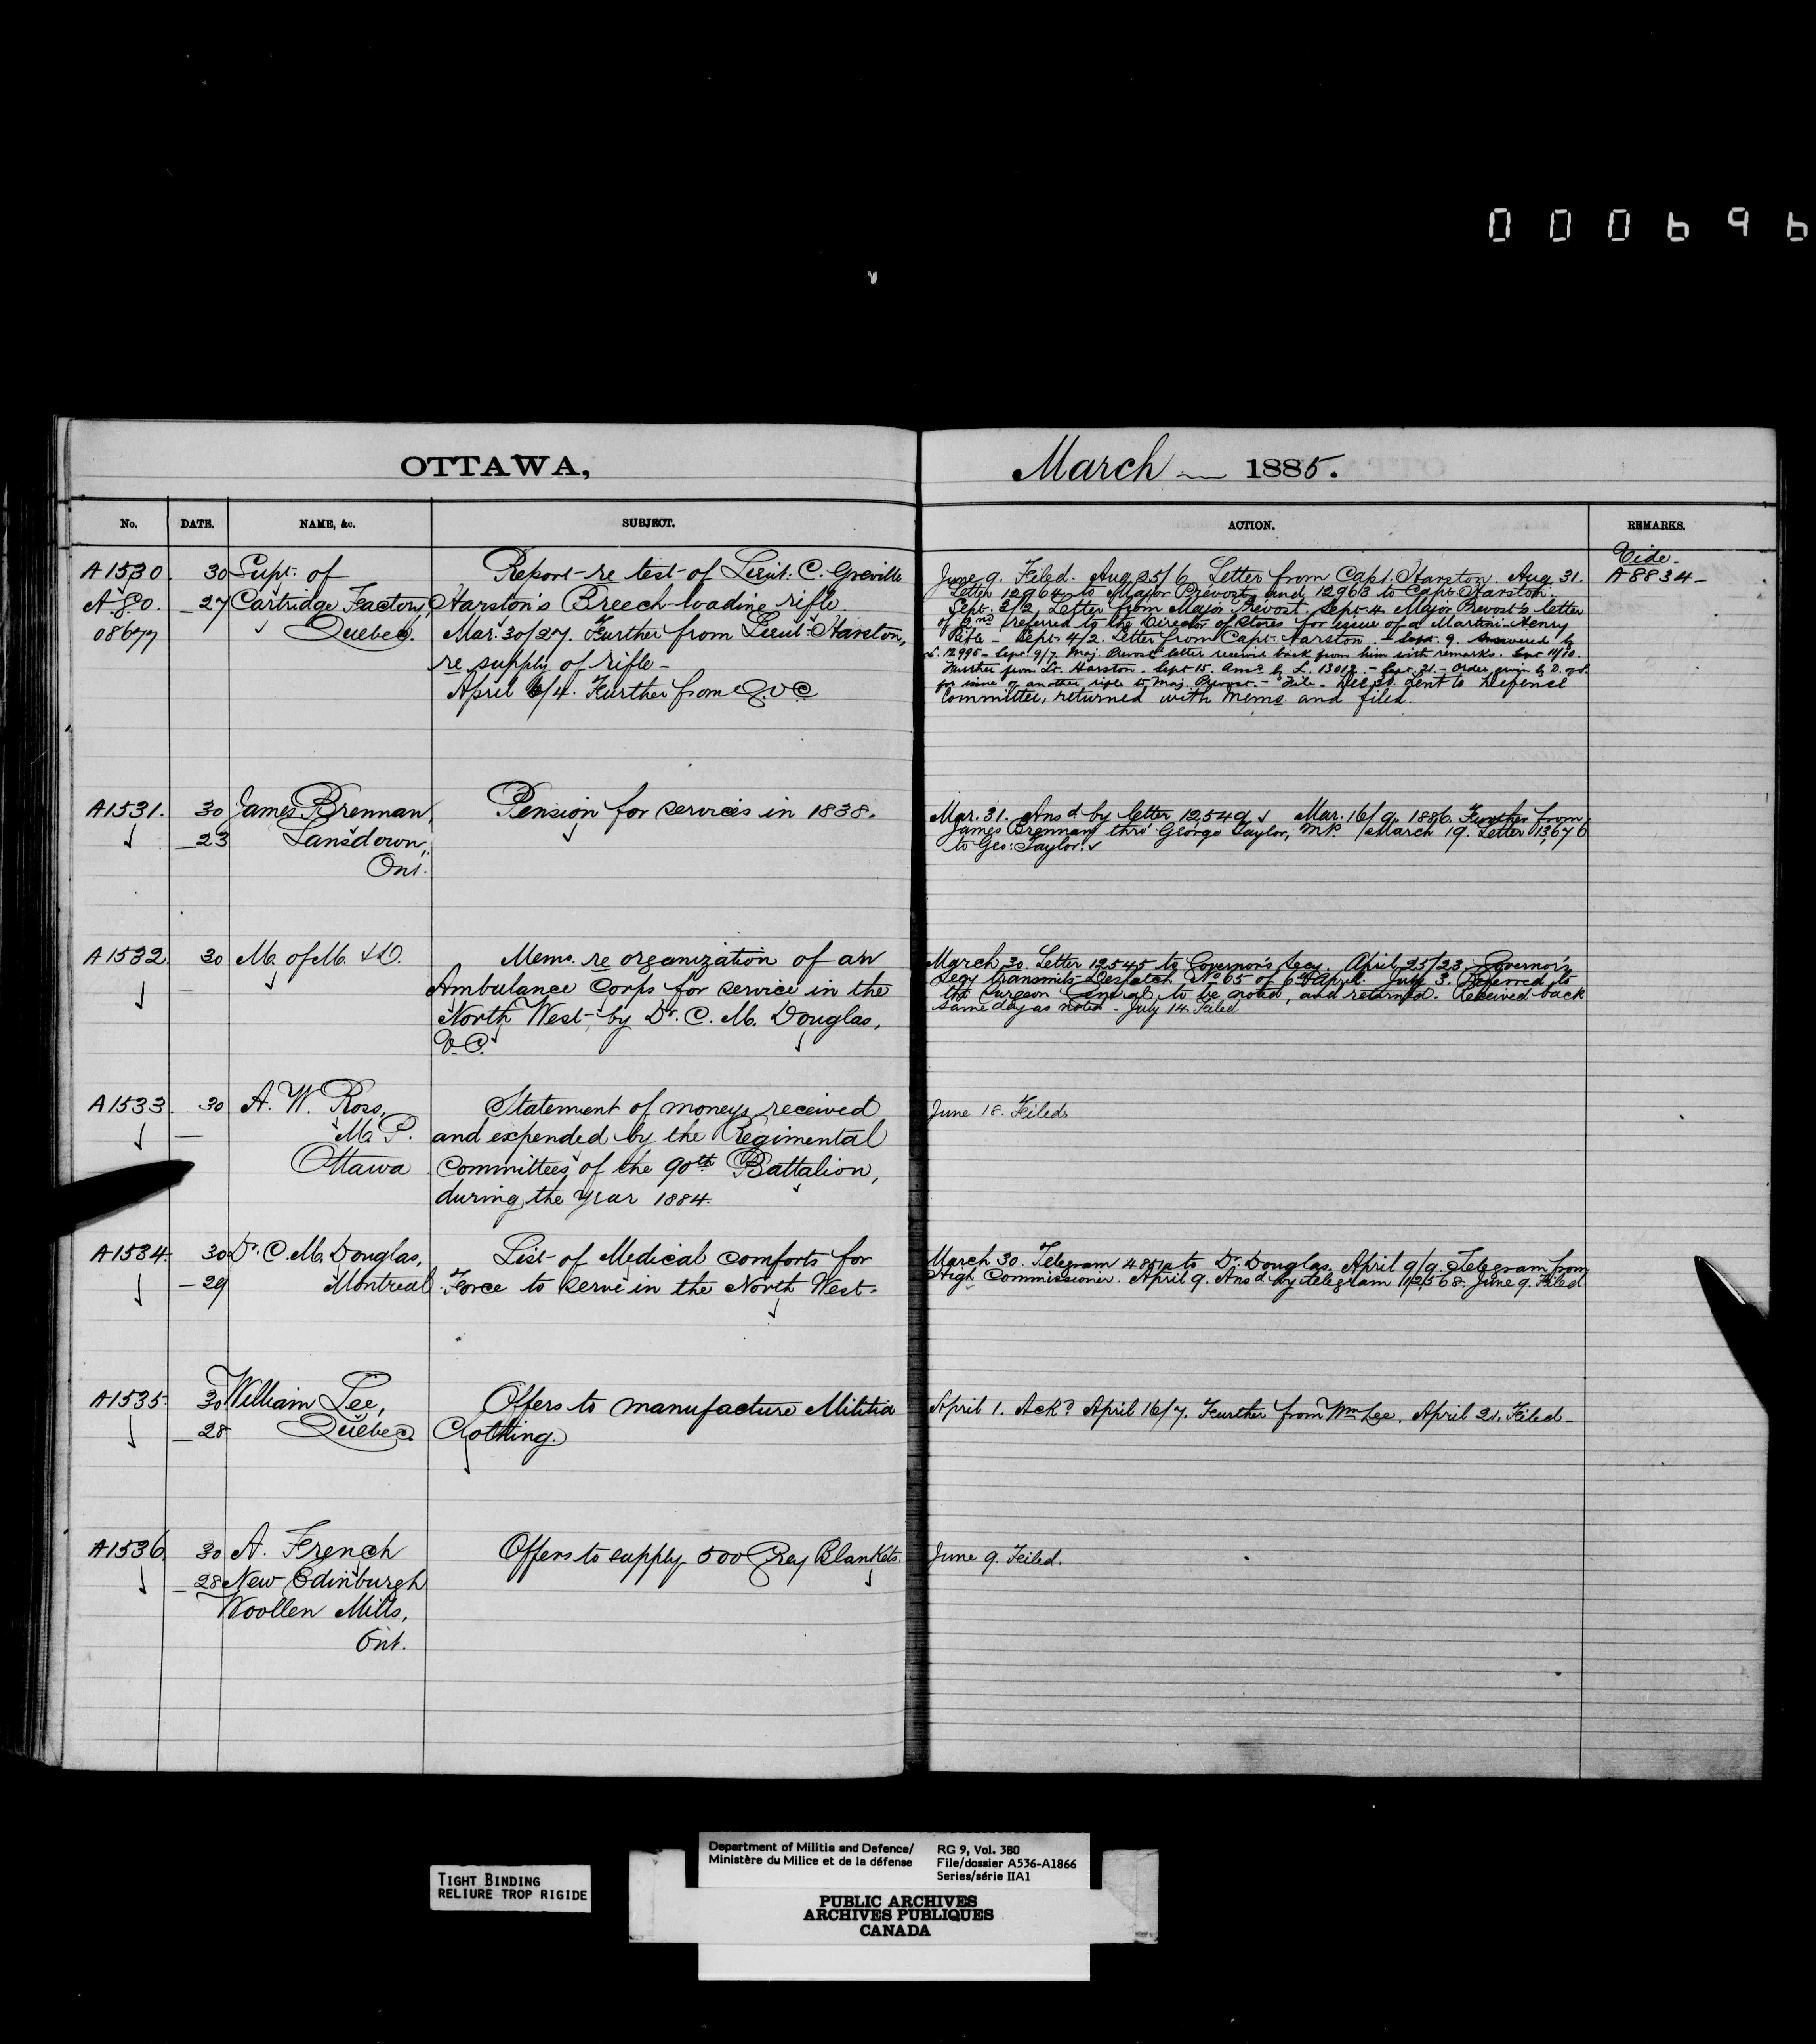 000696
OTTAWA,
March 1885.
No. DATE. NAME, &c. SUBJECT. ACTION. REMARKS.
A1530. 30 Supt. of
A.80. 27 Cartridge Factory,
08677 Quebec.
Report re test of Lieut. C. Greville
Harston's Breech-loading rifle.
Mar. 30/27. Further from Lieut. Harston,
re supply of rifle -
April 6/4. Further from
June 9. Filed. Aug 25/6 Letter from Capt. Harston. Aug 31.
Letter 12964 to Major Prevost and 12963 to Capt Harston.
Sept. 2/2 Letter from Major Prevost. Sept 4 Major Prevost's letter
of 2nd referred to the Director of Stores for issue of a Martini-Henry
Rifle - Sept. 4/2. Letter from Capt. Harston. - Sept. 9. Answered by
L. 12995 - Sept. 9/7. Maj. Prevost letter received back from him with remarks. Sept 11/10.
Further from Lt. Harston - Sept 15. Ansd by L. 13012 - Sept. 21 - Order given by D. of S.
for issue of another rifle to Maj. Prevost. - File - Sent to Defence
Committee, returned with memo and filed.
Vide -
A8834 -
A1531. 30 James Brennan,
23 Lansdown,
Ont.
Pension for services in 1838.
Mar. 31. Ansd by letter 12,549 Mar. 16/9. 1886. Further from
James Brennan thro' George Taylor, M.P. March 19. Letter 13,676
to Geo: Taylor.
A1532. 30 M. of M. & D.
Memo. re organization of an
Ambulance Corps for service in the
North West - by Dr. C. M. Douglas,
V.C.
March 30. Letter 12545 to Governor's Secy. April 25/23 Governor's
Secy transmits Despatch No 65 of 6th April. July 3. Referred to
the Surgeon General to be noted, and returned. Received back
same day as noted - July 14. Filed
A1533. 30 A. W. Ross,
M.P.
Ottawa
Statement of moneys received
and expended by the Regimental
Committees of the 90th Battalion,
during the year 1884.
June 18. Filed.
A1534. 30 Dr. C. M. Douglas,
29 Montreal
List of Medical comforts for
Force to serve in the North West.
March 30. Telegram to Dr. Douglas. April 9/9. Telegram from
High Commissioner. April 9. Ansd by telegram 12,568. June 9. Filed
A1535. 30 William Lee,
28 Quebec.
Offers to manufacture Militia
Clothing.
April 1. Ackd April 16/7. Further from Wm Lee. April 21. Filed -
A1536. 30 A. French
28 New Edinburgh
Woollen Mills,
Ont.
Offers to supply 500 Grey Blankets.
June 9. Filed.
TIGHT BINDING
RELIURE TROP RIGIDE
Department of Militia and Defence/
Ministère du Milice et de la défense
RG 9, Vol. 380
File/dossier A536-A1866
Series/série IIA1
PUBLIC ARCHIVES
ARCHIVES PUBLIQUES
CANADA